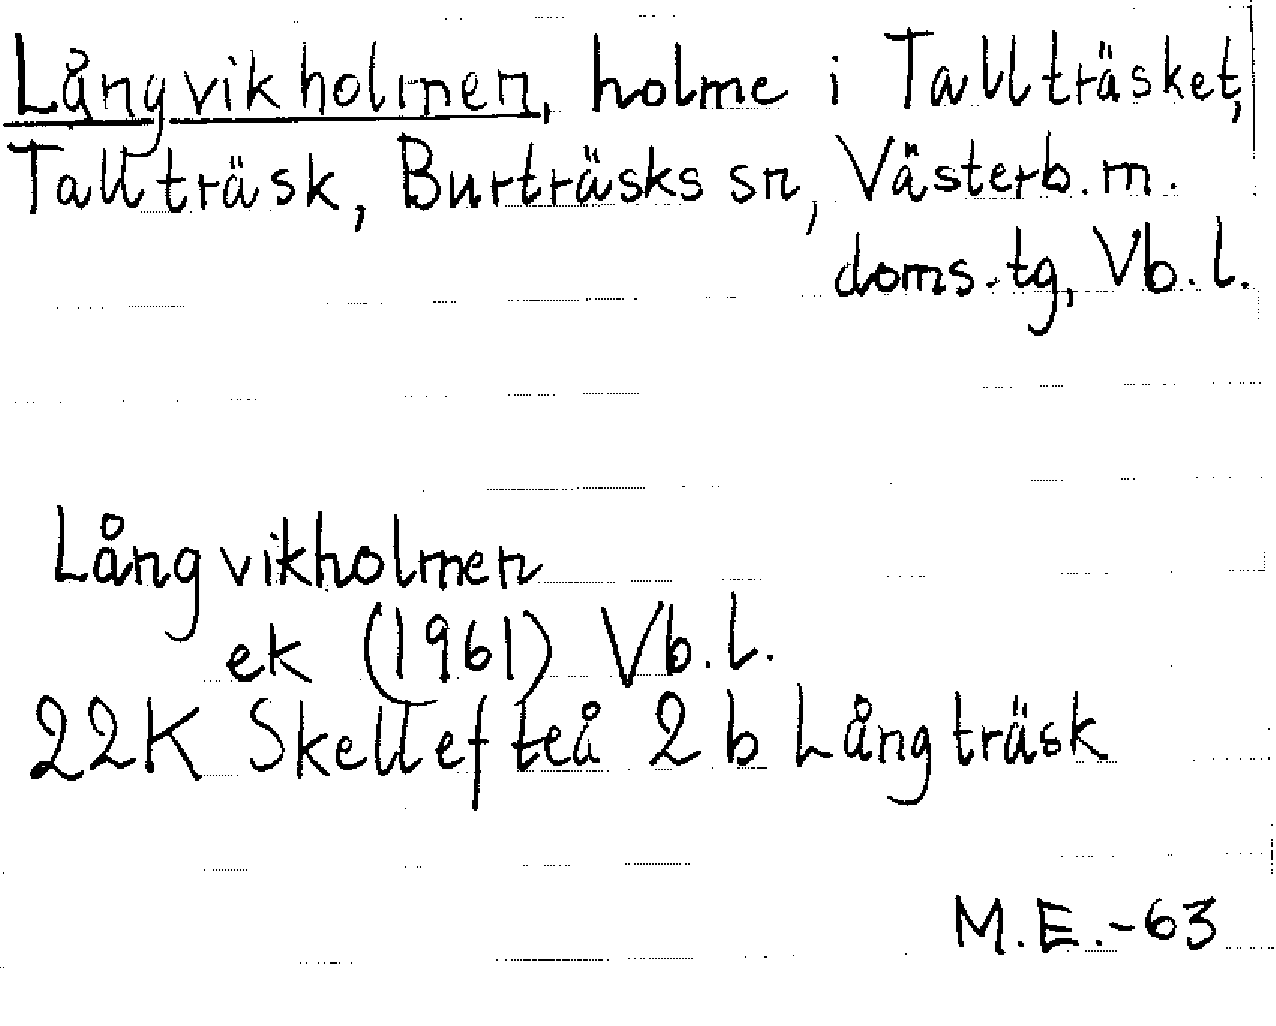 Långvikholmen, holme i Tallträsket,
Tallträsk, Burträsks sn, Västerb. m.
doms.tg, Vb. l.
Långvikholmen
ek (1961) Vb. l.
22K Skellefteå 2 b Långträsk
M.E.-63